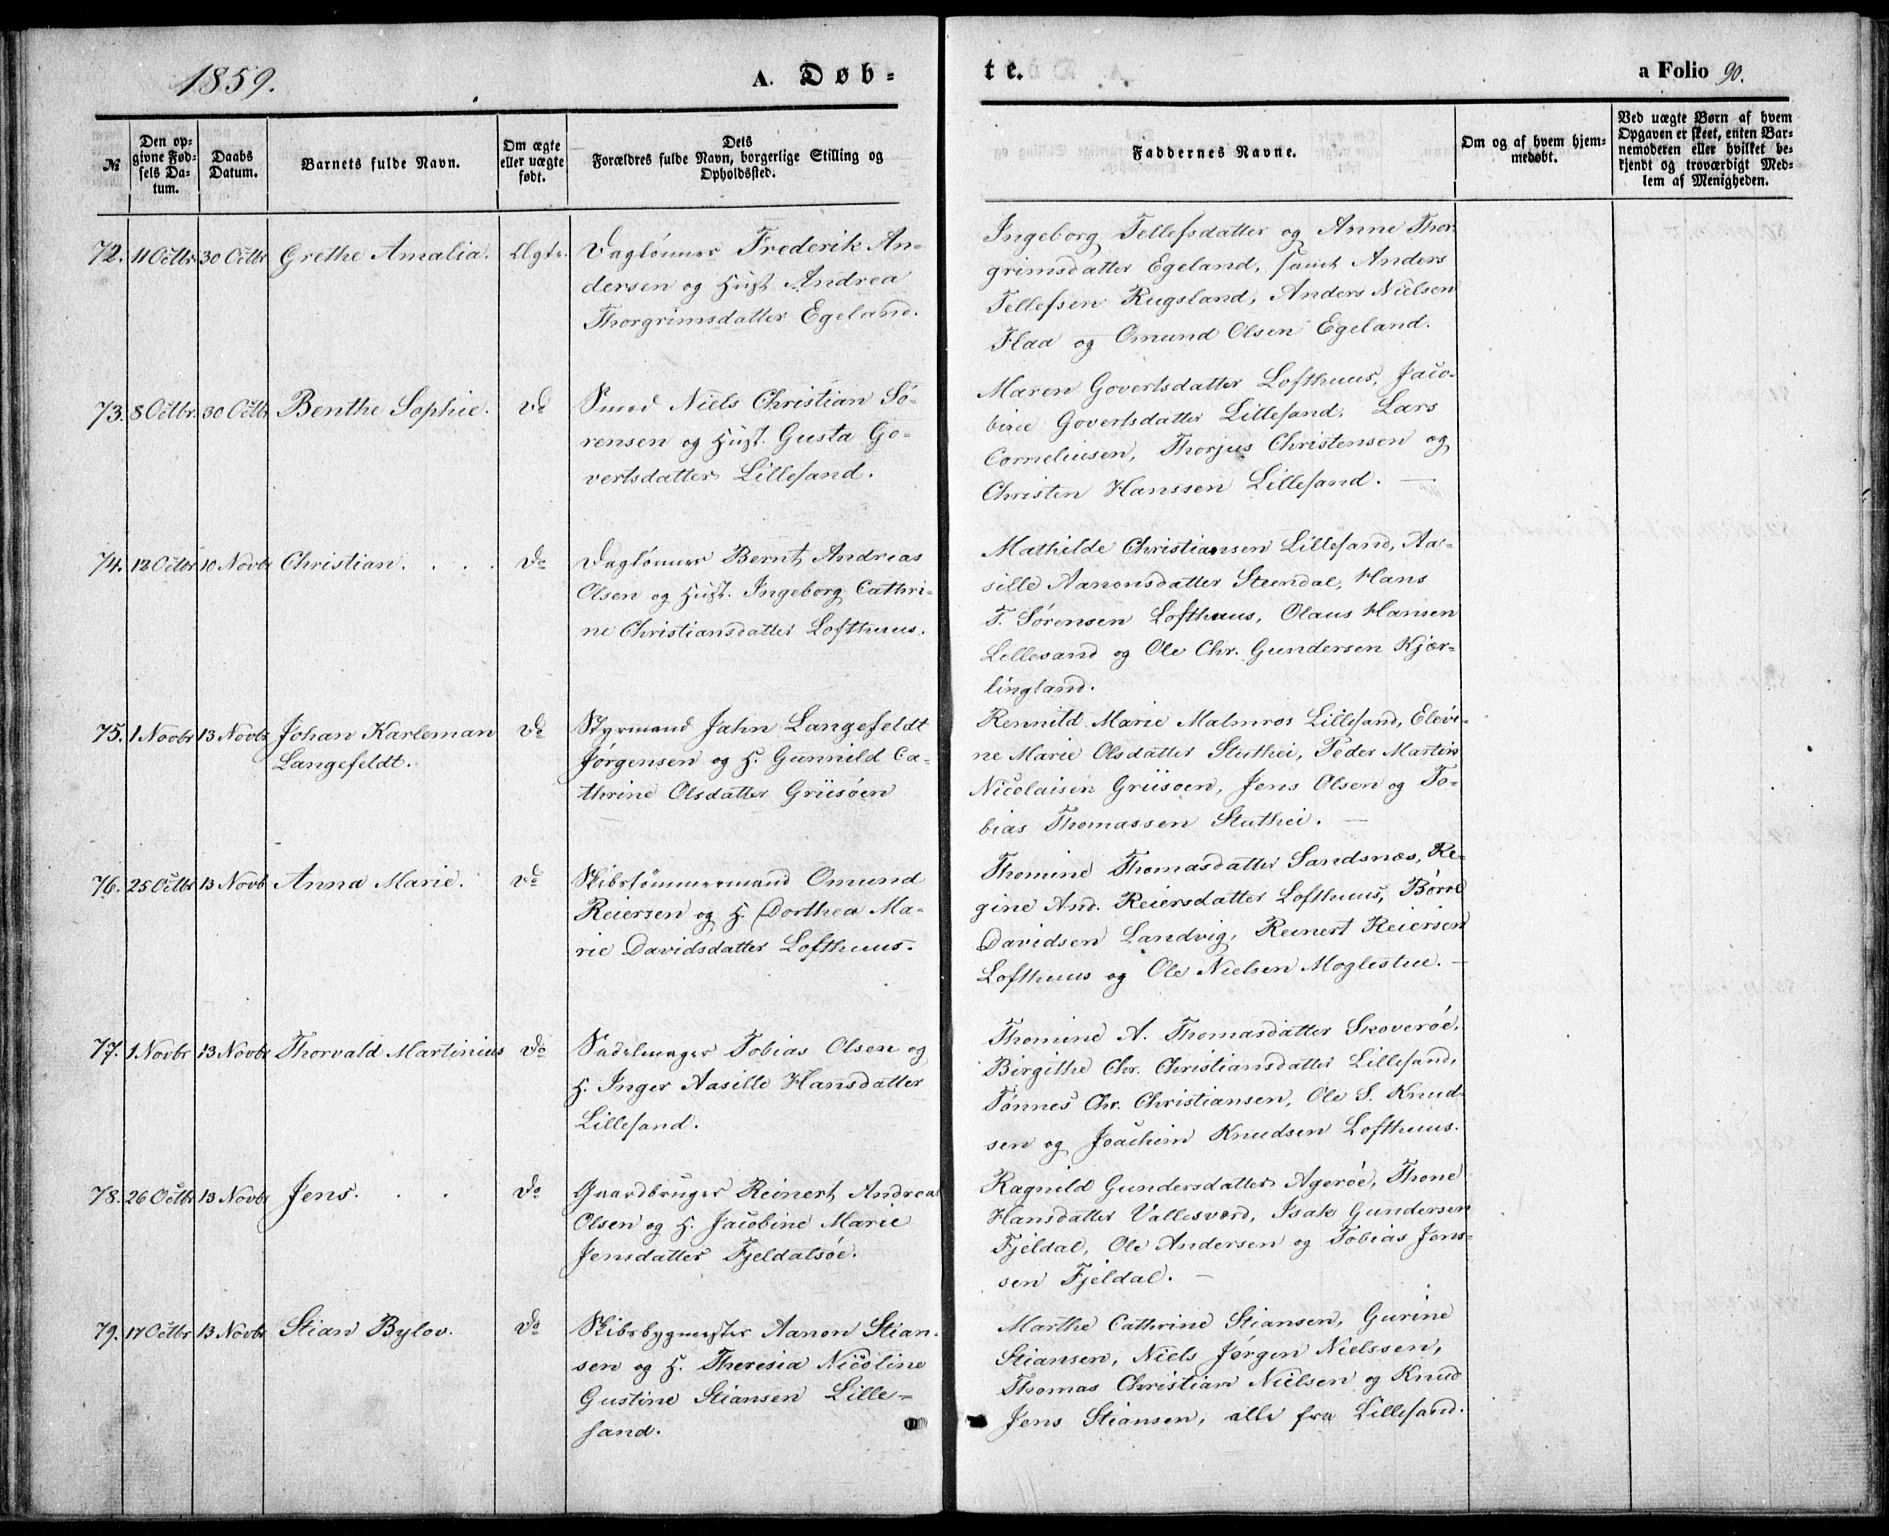 1859.
A. Døb-
te.
a Folio 90.
№
Den op-
givne Fød-
sels Da-
tum.
Daabs
Datum.
Barnets fulde Navn.
Om ægte
eller uægte
født.
Dets
Forældres fulde Navn, borgerlige Stilling og
Opholdssted.
Faddernes Navne.
Om og af hvem hjem-
medøbt.
Ved uægte Børn af hvem
Opgaven er skeet, enten Bar-
nemoderen eller hvilket be-
kjendt og troværdigt Med-
lem af Menigheden.
72. 11 Octbr 30 Octbr Grethe Amalia. Ægte.
Daglønner Frederik An-
dersen og Hust. Andrea
Thorgrimsdatter Egeland.
Ingeborg Tellefsdatter og Anne Thor-
grimsdatter Egeland, samt Anders
Tellefsen Rugsland, Anders Nielsen
Flaa og Omund Olsen Egeland.
73. 8 Octbr 30 Octbr Benthe Sophie. Do
Smed Niels Christian Sø-
rensen og Hust. Gusta Go-
vertsdatter Lillesand.
Maren Govertsdatter Lofthuus, Jaco-
bine Govertsdatter Lillesand, Lars
Corneliusen, Thorjus Christensen og
Christen Hanssen Lillesand. —
74. 12 Octbr 10 Novbr Christian. . . . Do
Daglønner Bernt Andreas
Olsen og Hust. Ingeborg Cathri-
ne Christiansdatter Lofthuus.
Mathilde Christiansen Lillesand, Aa-
sille Aanonsdatter Steendal, Hans
T. Sørensen Lofthuus, Olaus Hansen
Lillesand og Ole Chr. Gundersen Kjær-
lingland.
75. 1 Novbr 13 Novbr Johan Karleman
Langefeldt. Do
Styrmand Jahn Langefeldt
Jørgensen og H. Gunnild Ca-
thrine Olsdatter Griisøen
Rennild Marie Malmros Lillesand, Elevi-
ne Marie Olsdatter Stuthei, Peder Martin
Nicolaisen Griisøen, Jens Olsen og To-
bias Thomassen Stuthei. —
76. 25 Octbr 13 Novb Anna Marie. Do
Skibstømmermand Omund
Reiersen og H. Dorthea Ma-
rie Davidsdatter Lofthuus.
Thomine Thomasdatter Sandsnæs, Re-
gine And. Reiersdatter Lofthuus, Børre
Davidsen Landvig, Reinert Reiersen
Lofthuus og Ole Nielsen Moglestue. —
77. 1 Novbr 13 Novbr Thorvald Martinius Do
Sadelmager Tobias Olsen og
H. Inger Aasille Hansdatter
Lillesand.
Thomine A. Thomasdatter Skoverøe,
Birgithe Chr. Christiansdatter Lillesand,
Tønnes Chr. Christiansen, Ole S. Knud-
sen og Joachim Knudsen Lofthuus.
78. 26 Octbr 13 Novbr Jens. . . Do
Gaardbruger Reinert Andreas
Olsen og H. Jacobine Marie
Jensdatter Fjeldalsøe.
Ragnild Gundersdatter Agerøe, Thone
Hansdatter Vallesværd, Isak Gundersen
Fjeldal, Ole Andersen og Tobias Jens-
sen Fjeldal. —
79. 17 Octbr 13 Novbr Stian Bylov. Do
Skibsbygmester Aanon Stian-
sen og H. Theresia Nicoline
Gustine Stiansen Lille-
sand.
Marthe Cathrine Stiansen, Gurine
Stiansen, Niels Jørgen Nielssen,
Thomas Christian Nielsen og Knud
Jens Stiansen, alle fra Lillesand.